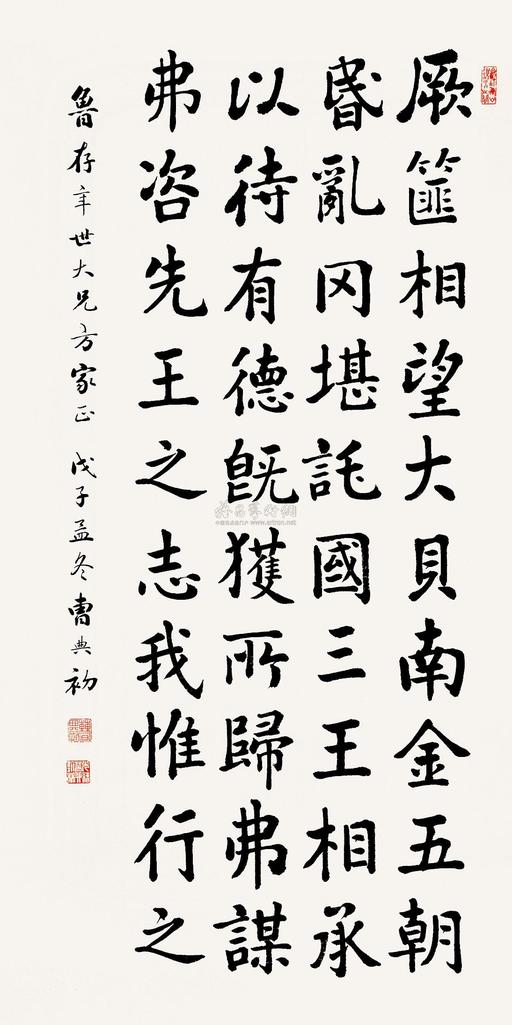 厥篚相望大貝南金五朝
昏亂冈堪託國三王相承
以待有德旣獲所歸弗謀
弗咨先王之志我惟行之
魯存年世大兄方家正 戊子孟冬曹典初